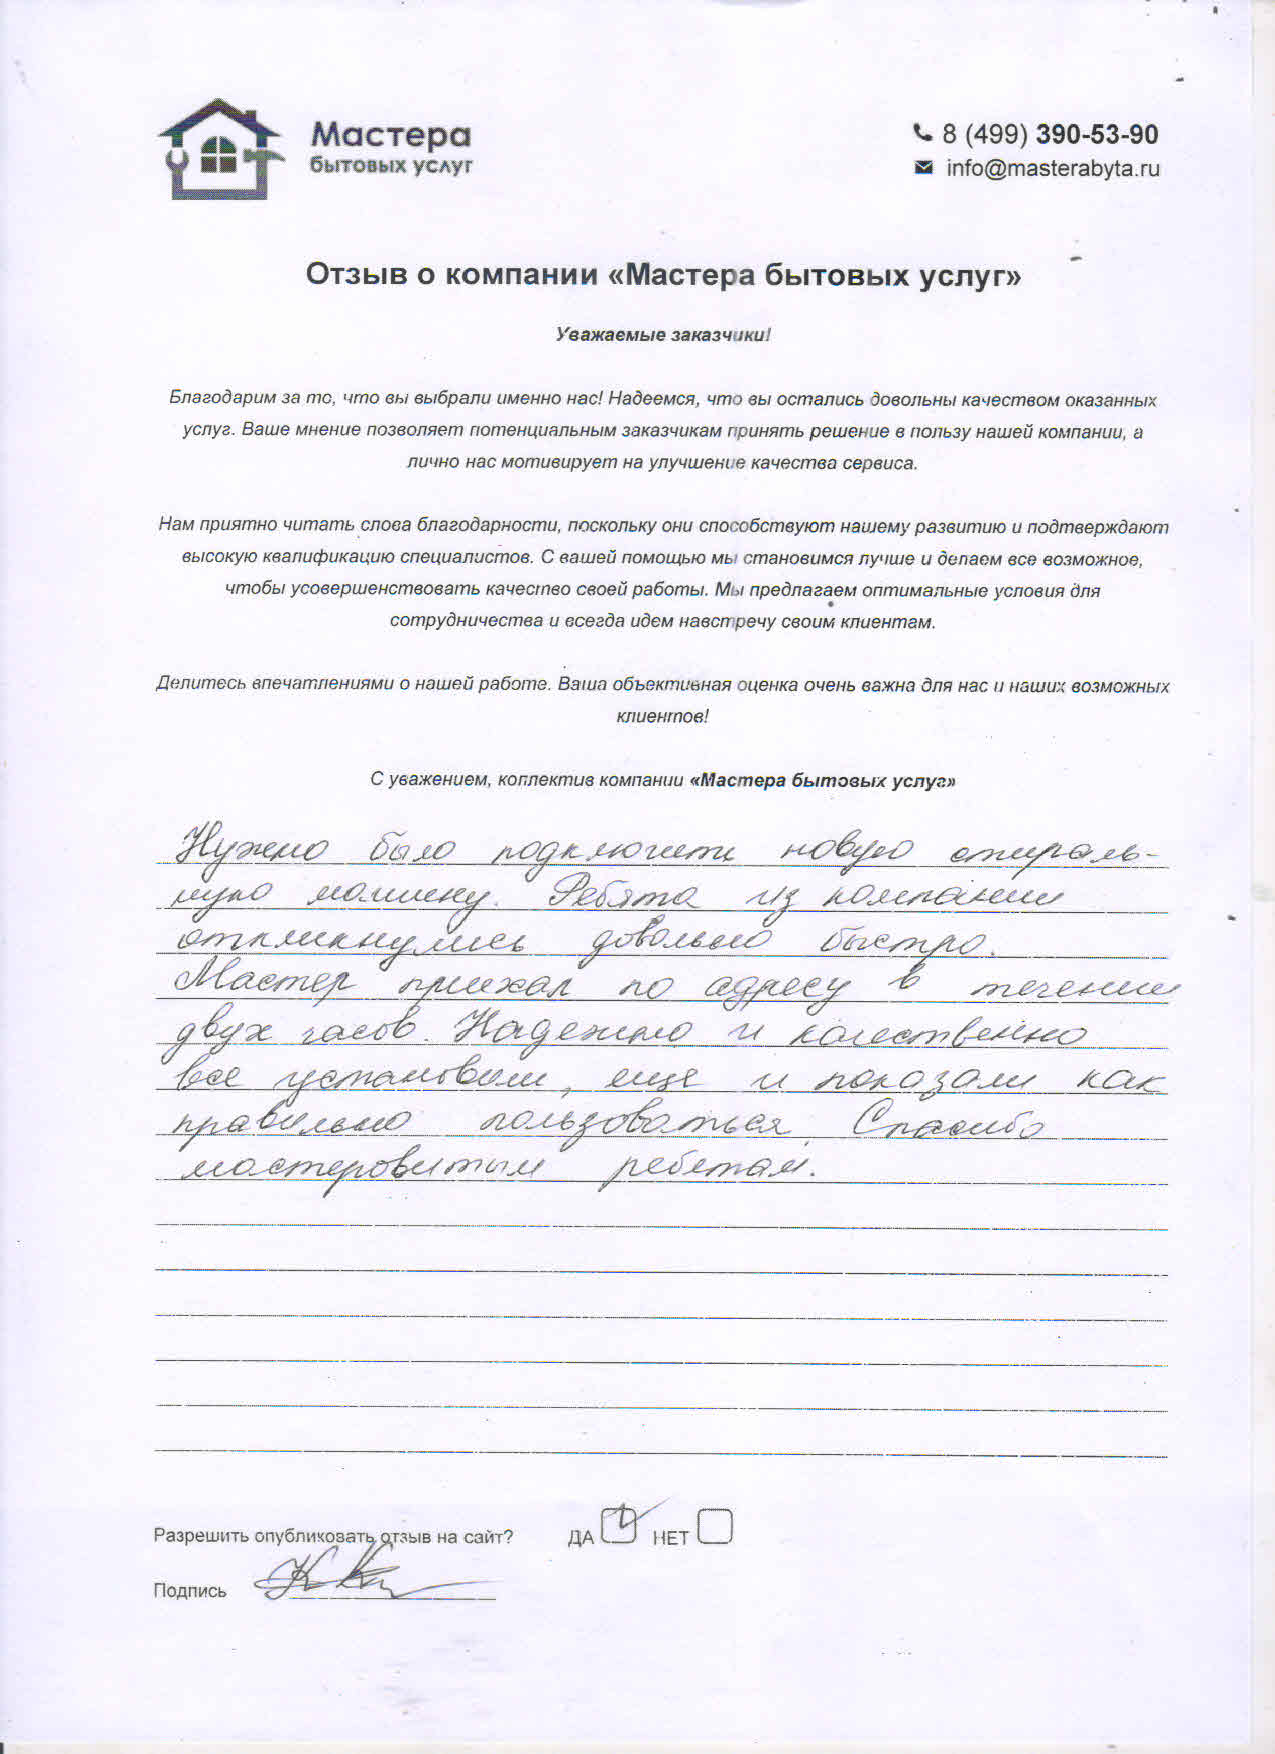 Мастера
бытовых услуг
8 (499) 390-53-90
info@masterabyta.ru
Отзыв о компании «Мастера бытовых услуг»
Уважаемые заказчики!
Благодарим за то, что вы выбрали именно нас! Надеемся, что вы остались довольны качеством оказанных
услуг. Ваше мнение позволяет потенциальным заказчикам принять решение в пользу нашей компании, а
лично нас мотивирует на улучшение качества сервиса.
Нам приятно читать слова благодарности, поскольку они способствуют нашему развитию и подтверждают
высокую квалификацию специалистов. С вашей помощью мы становимся лучше и делаем все возможное,
чтобы усовершенствовать качество своей работы. Мы предлагаем оптимальные условия для
сотрудничества и всегда идем навстречу своим клиентам.
Делитесь впечатлениями о нашей работе. Ваша объективная оценка очень важна для нас и наших возможных
клиентов!
С уважением, коллектив компании «Мастера бытовых услуг»
Нужно было подключить новую стираль-
ную машину. Ребята из компании
откликнулись довольно быстро.
Мастер приехал по адресу в течении
двух часов. Надежно и качественно
все установили, еще и показали как
правильно пользоваться. Спасибо
мастеровитым ребятам.
Разрешить опубликовать отзыв на сайт? ДА НЕТ
Подпись